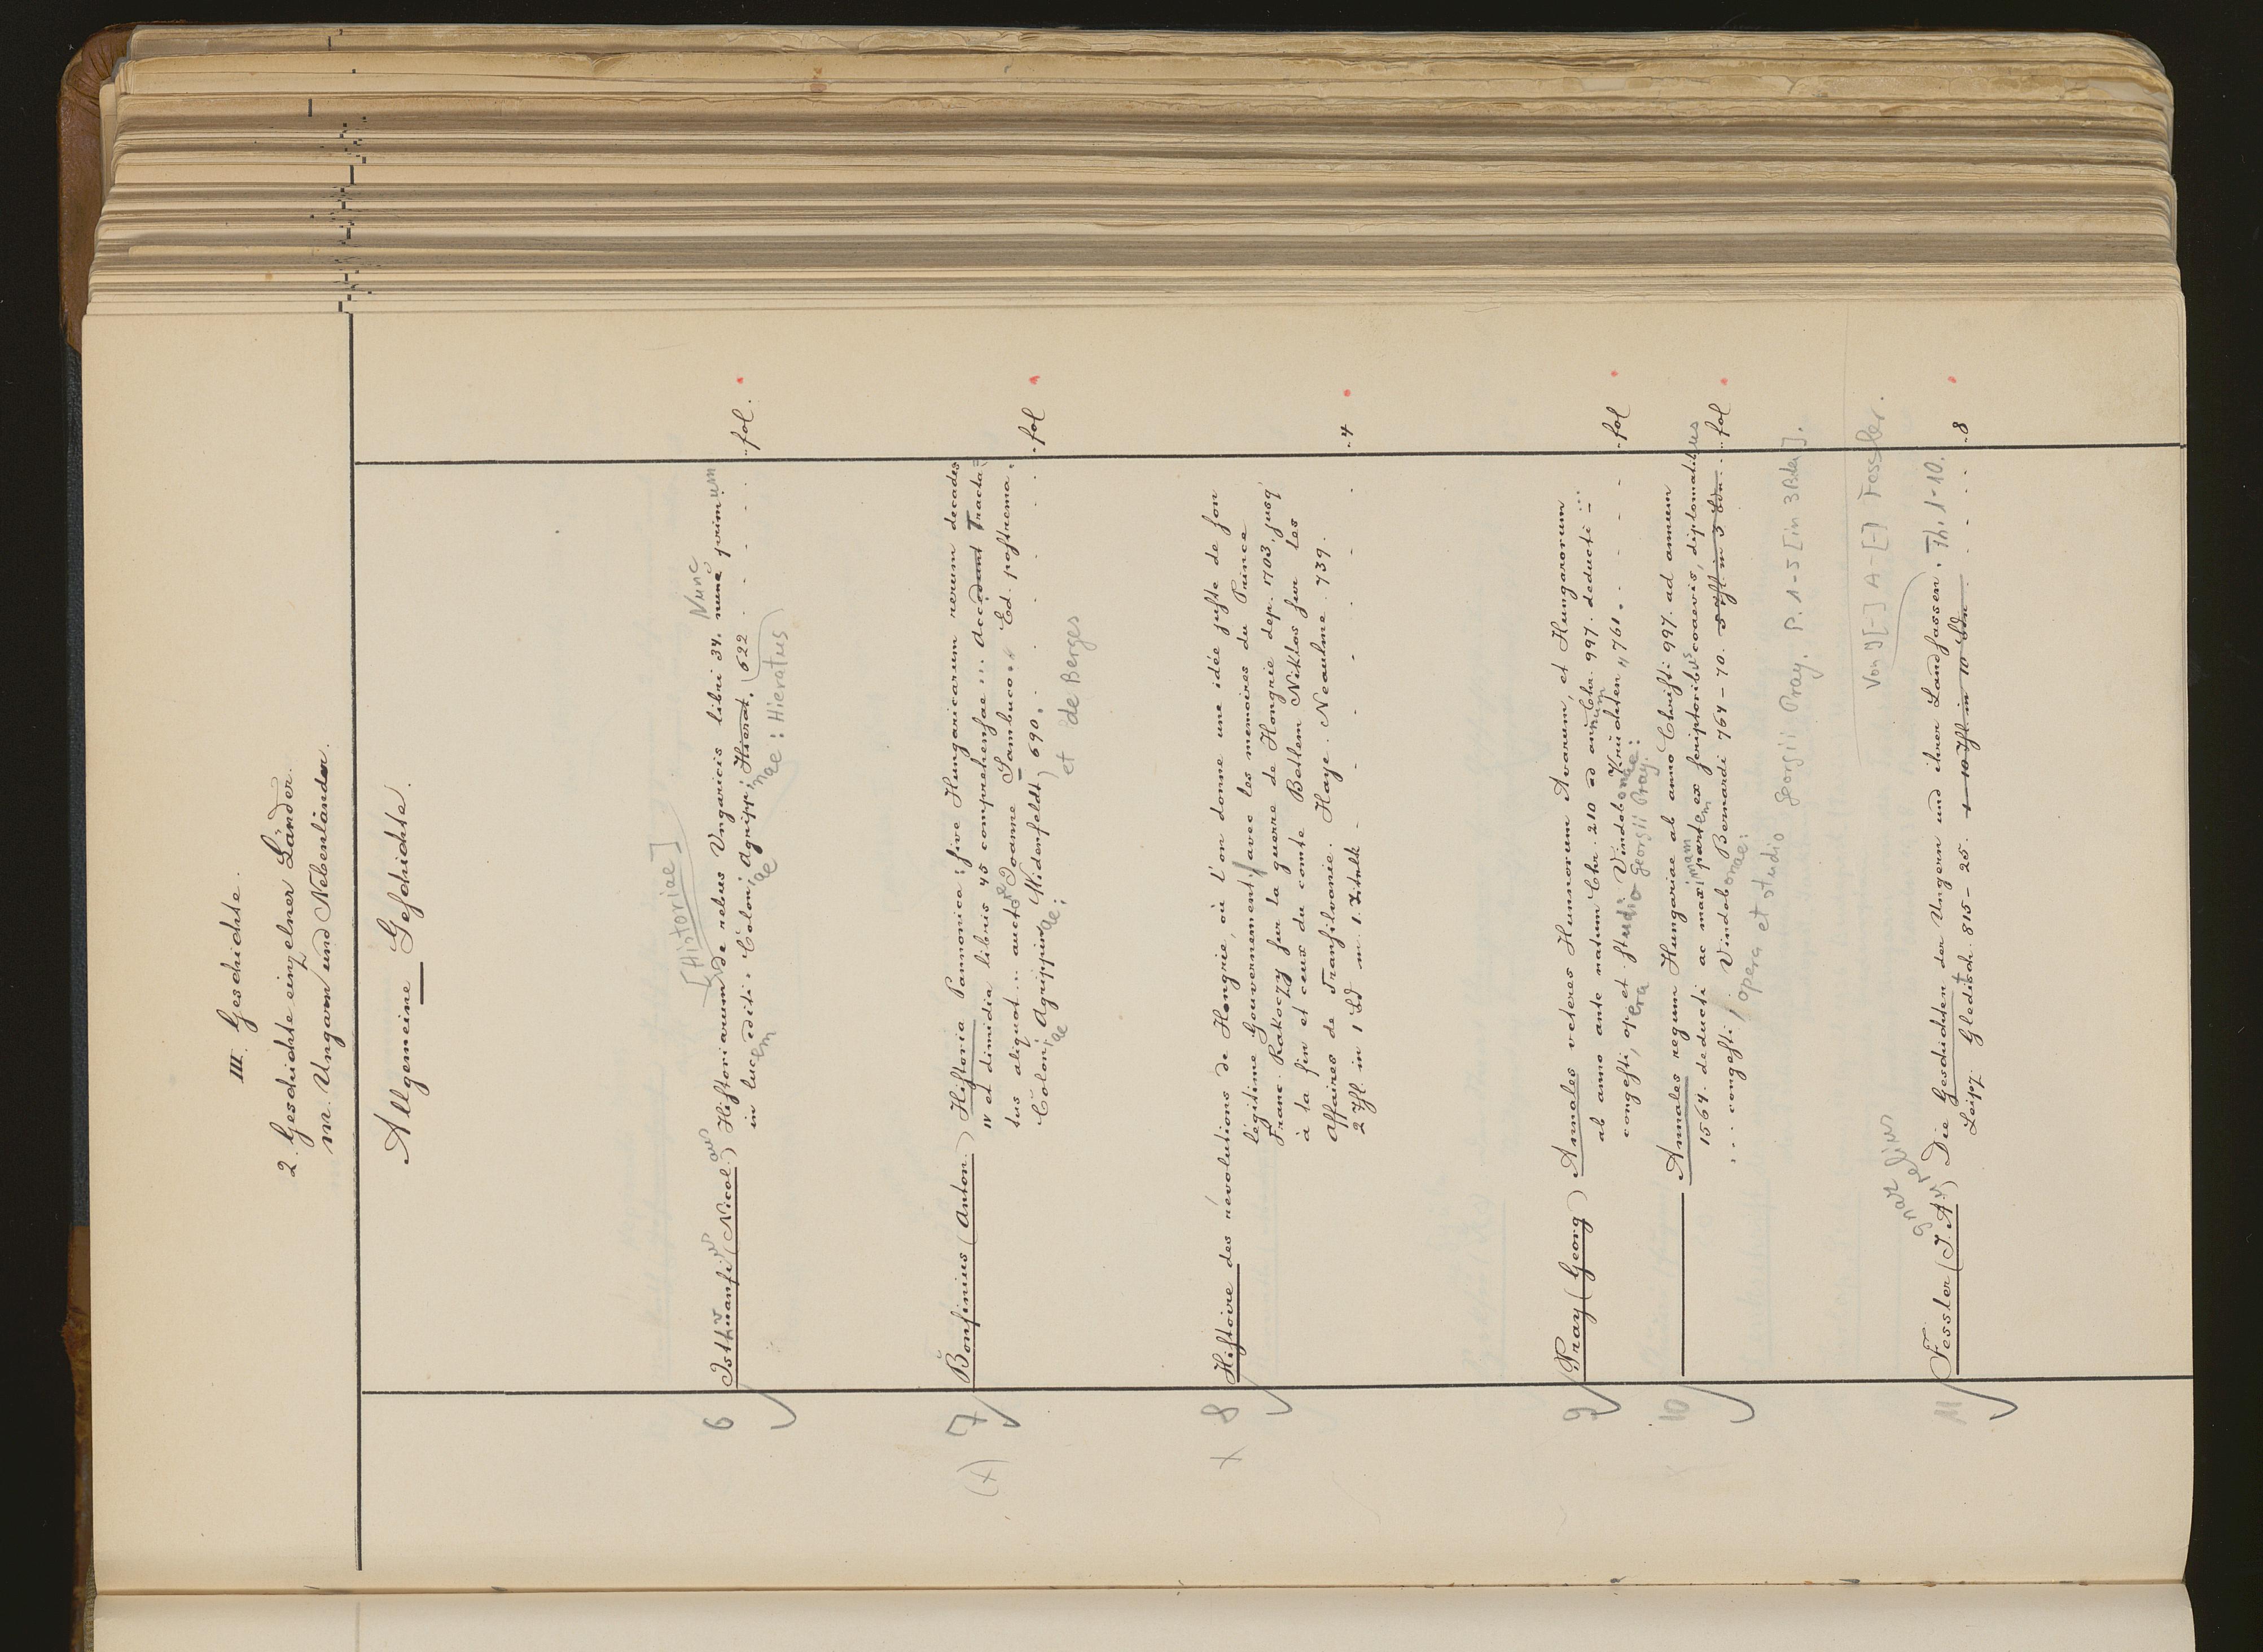 III. Geschichte.
2. Geschichte einzelner Länder.
nr. Ungarn und Nebenländer.
Allgemeine Geschichte.
[Historiae]
Nunc
6 Isthuanfius (Nicolaus) Historiarum de rebus Ungaricis libri 34. nunc primum
in lucem editi. Coloniae Agrippinae: Hierat. 622 fol.
nae: Hieratus
(x) 7 Bonfinius (Anton.) Historia Pannonica: sive Hungaricarum rerum decades
IV et dimidia libris 45 comprehensae ... Accedunt Tracta=
tus aliquot ... auctore Joanne Sambuco. Ed. postrema.
Coloniae Agrippinae: Widenfeldt, 690. fol
et de Berges
x 8 Histoire des révolutions de Hongrie, où l'on donne une idée juste de son
légitime Gouvernement avec les memoires du Prince
Franc. Rakoczy sur la guerre de Hongrie dep. 1703. jusq'
à la fin et ceux du comte Betlem Niklos sur les
Affaires de Transilvanie. Haye. Neaulme. 739.
2 Thl. in 1 Bd m. 1. Titelk. 4
9 Pray (Georg) Annales veteres Hunnorum Avarum, et Hungarorum
ab anno ante natum Chr. 210 ad annum Chr. 997. deducti -
congesti, opera et studio Georgii Pray. Vindobonae: 761. fol
10 Annales regum Hungariae ab anno Christi 997. ad annum
1564. deducti ac maximam partem ex scriptoribus coaevis, diplomatibus
... congesti / Vindobonae: Bernardi 764-70. 5 Thl. in 3 Bdn. fol
opera et studio Georgii Pray. P. 1-5 [in 3 Bden].
Von I[-] A-[-] Fessler.
gnaz
relius
11 Fessler (I. A.) Die Geschichten der Ungern und ihrer Landsassen. Th. 1-10.
Leipz. Gleditsch. 815-25. 10 Thl. in 10 Bdn. 8